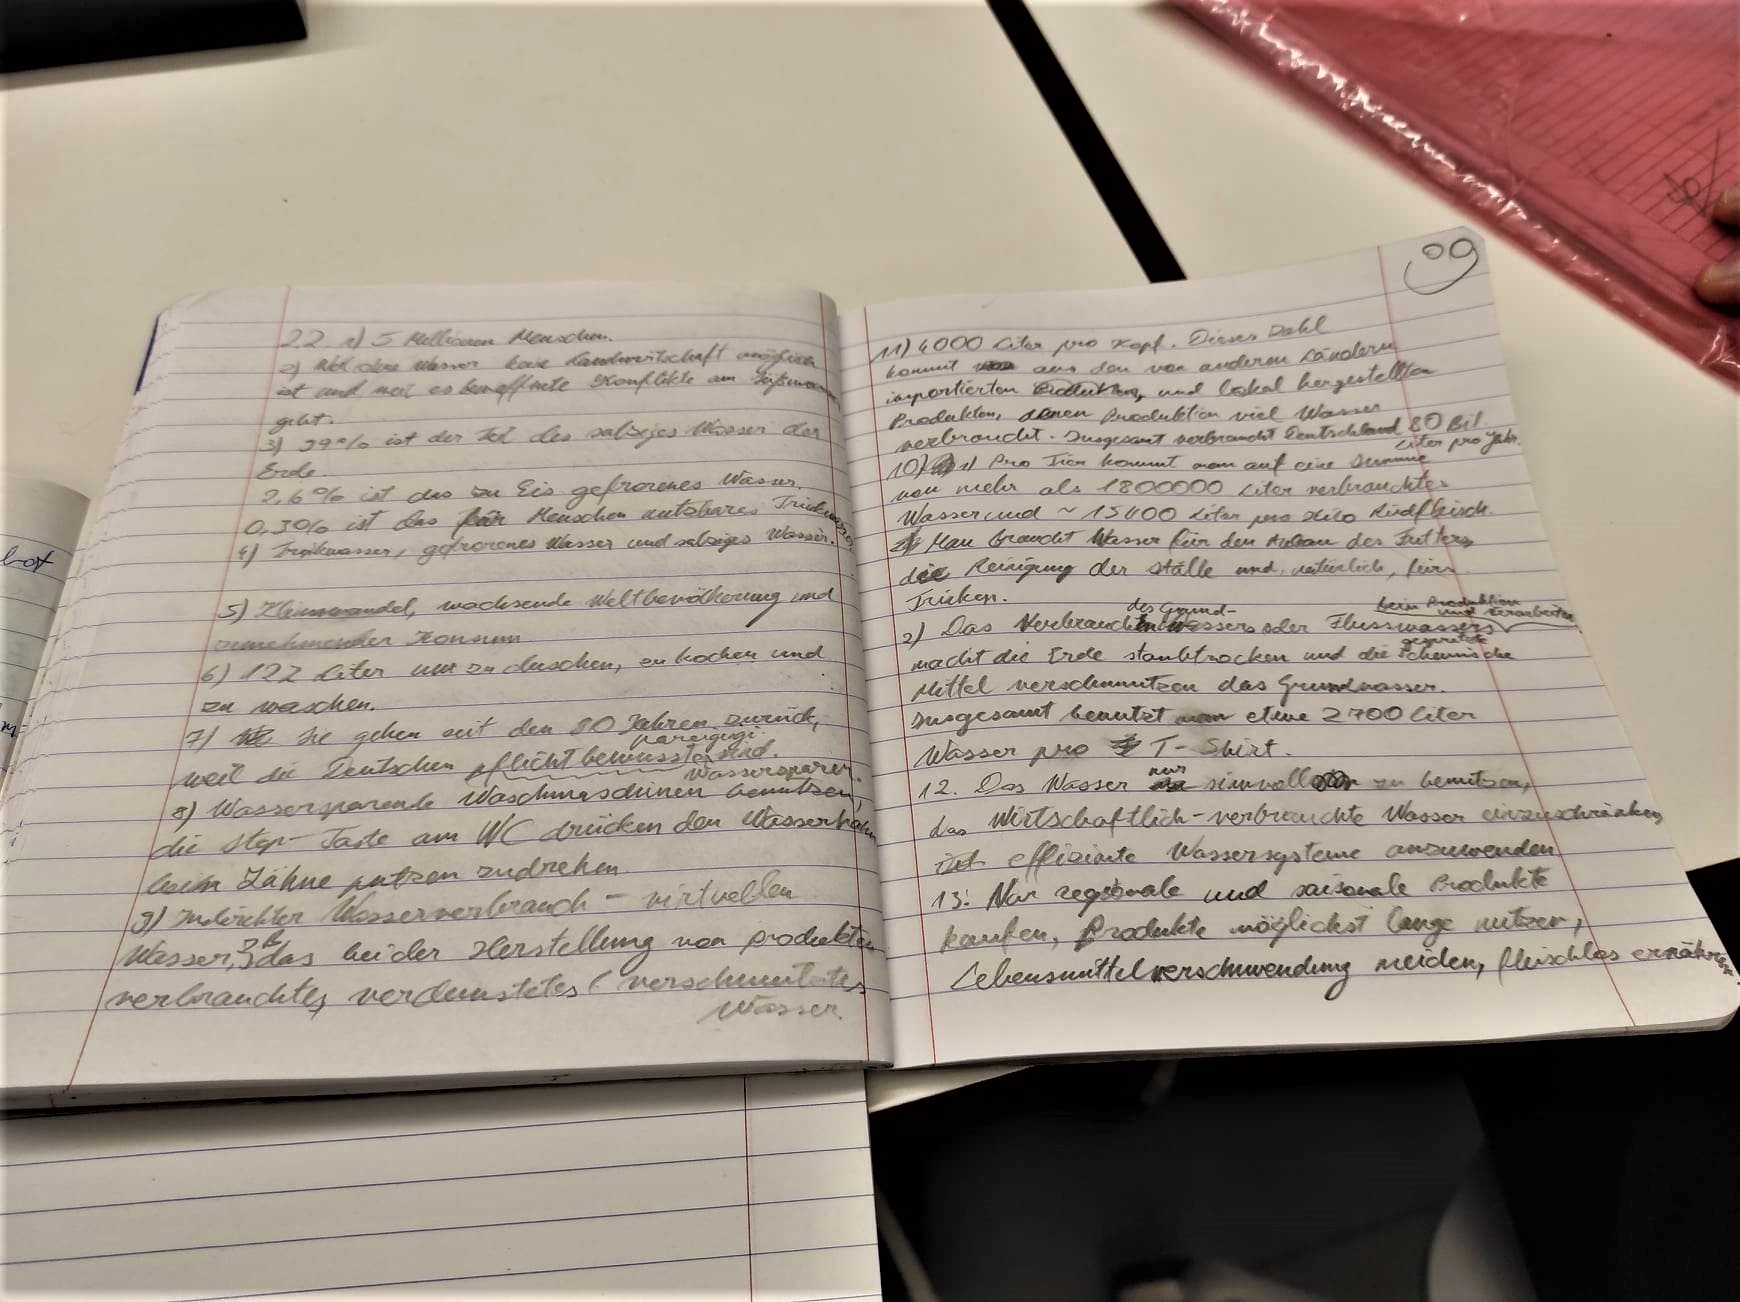 22. 1) 5 Millionen Menschen.
2) Weil ohne Wasser keine Landwirtschaft möglich
ist und weil es bewaffnete Konflikte um
gibt.
3) 99% ist der Teil des salziges Wasser der
Erde.
2,6% ist das zu Eis gefrorenes Wasser.
0,3% ist das für Menschen nutzbares Trinkwasser.
4) Trinkwasser, gefrorenes Wasser und salziges Wasser.
5) Klimawandel, wachsende Weltbevölkerung und
zunehmender Konsum
6) 122 Liter um zu duschen, zu kochen und
zu waschen.
7) Sie gehen seit den 80 Jahren zurück,
weil die Deutschen pflichtbewusste sind.
Wassersparer.
8) Wassersparende Waschmaschinen benutzen,
die Stop-Taste am WC drücken den Wasserhahn
beim Zähne putzen zudrehen
9) Indirekter Wasserverbrauch - virtuellen
Wasser, das bei der Herstellung von Produkten
verbrauchtes, verdunstetes / verschmutztes
Wasser.
11) 4000 Liter pro Kopf. Dieses Zahl
kommt aus den von anderen Ländern
importierten Produkten, und lokal hergestellten
Produkten, denen Produktion viel Wasser
verbraucht. Insgesamt verbraucht Deutschland 80 Bil
Liter pro Jahr.
10) 1) Pro Tier kommt man auf eine Summe
von mehr als 1800000 Liter verbrauchtes
Wasser und ~ 15400 Liter pro Kilo Rindfleisch.
Man braucht Wasser für den Anbau des Futters,
die Reinigung der Ställe und, natürlich, fürs
Trinken.
des Grund- beim Produktion
und verarbeiten
2) Das Verbrauchen wassers oder Flusswassers
gespritzte
macht die Erde staubtrocken und die chemische
Mittel verschmutzen das Grundwasser.
Insgesamt benutzt man etwa 2700 Liter
Wasser pro T-Shirt.
12. Das Wasser nur sinnvoll zu benutzen,
das Wirtschaftlich-verbrauchte Wasser einzuschränken,
effiziente Wassersysteme anzuwenden
13. Nur regionale und saisonale Produkte
kaufen, Produkte möglichst lange nutzen,
Lebensmittelverschwendung meiden, fleischlos ernähren